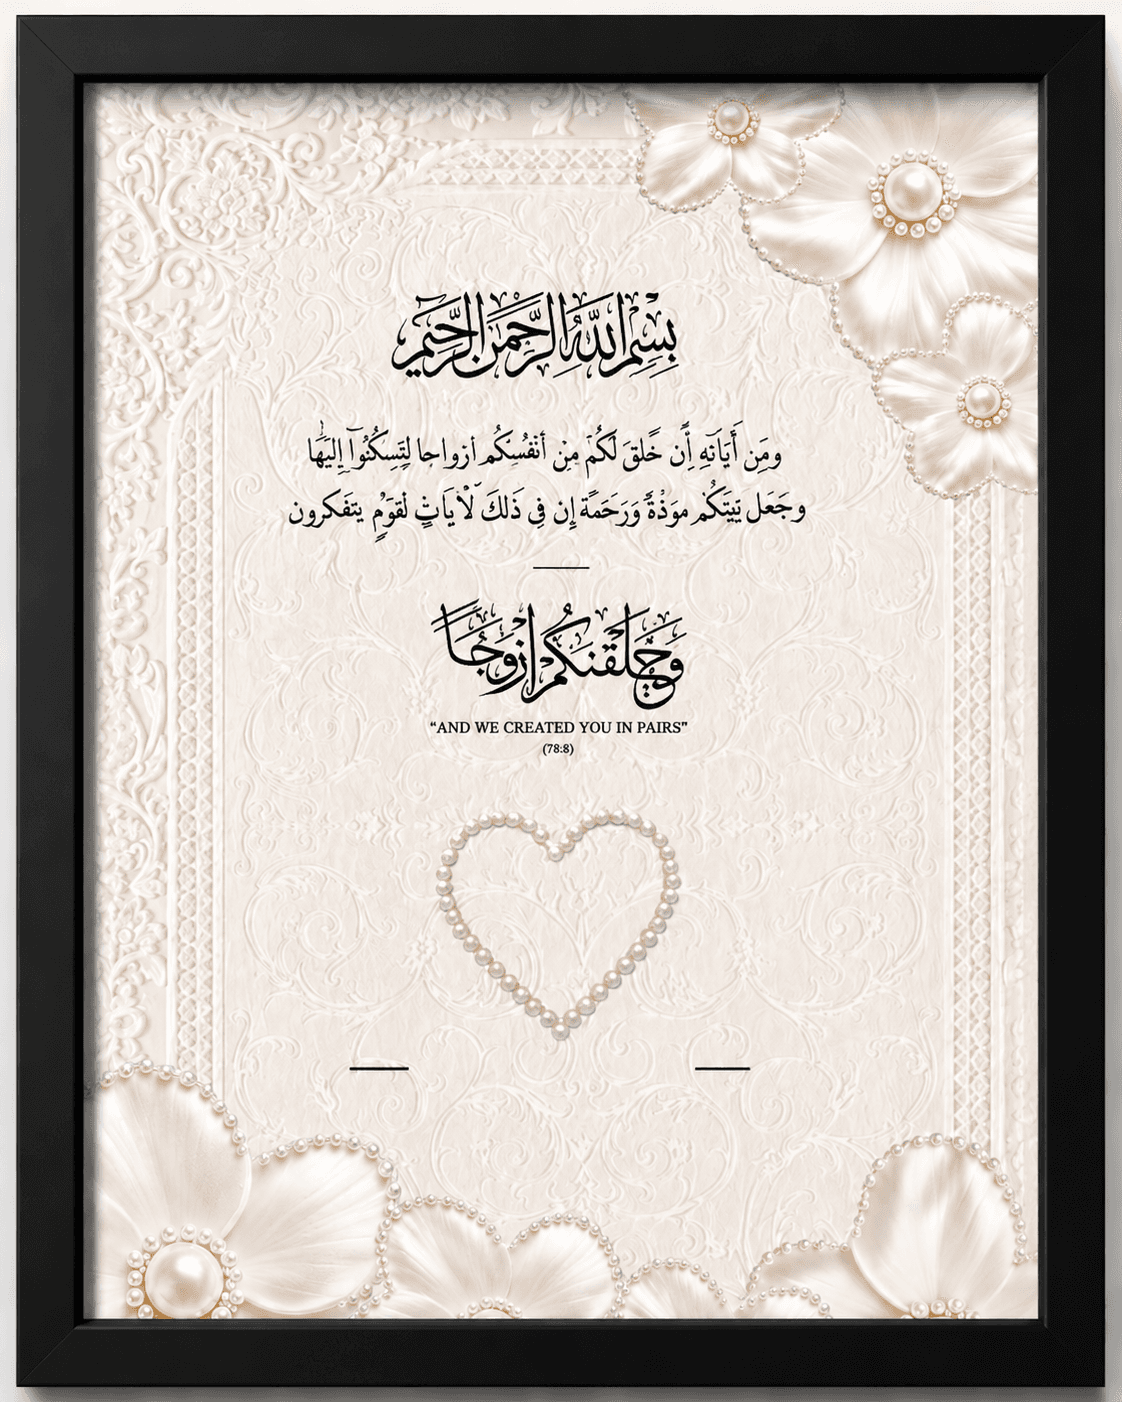 بِسْمِ اللَّهِ الرَّحْمَنِ الرَّحِيمِ
ومَن أَيَاتَهِ أَن خَلقَ لَكُمْ مِنْ أنفُسكُم أزواجا لتَسكنُوآ إليهَا
وجَعَل بَيتَكُم موَدْةً وَرَحمَة إن فِي ذَلكَ لأيَاتٍ لقَوَمٍ يتفَكرون
وَخَلَقْنَكُمْ أَزْوَجًا
“AND WE CREATED YOU IN PAIRS”
(78:8)